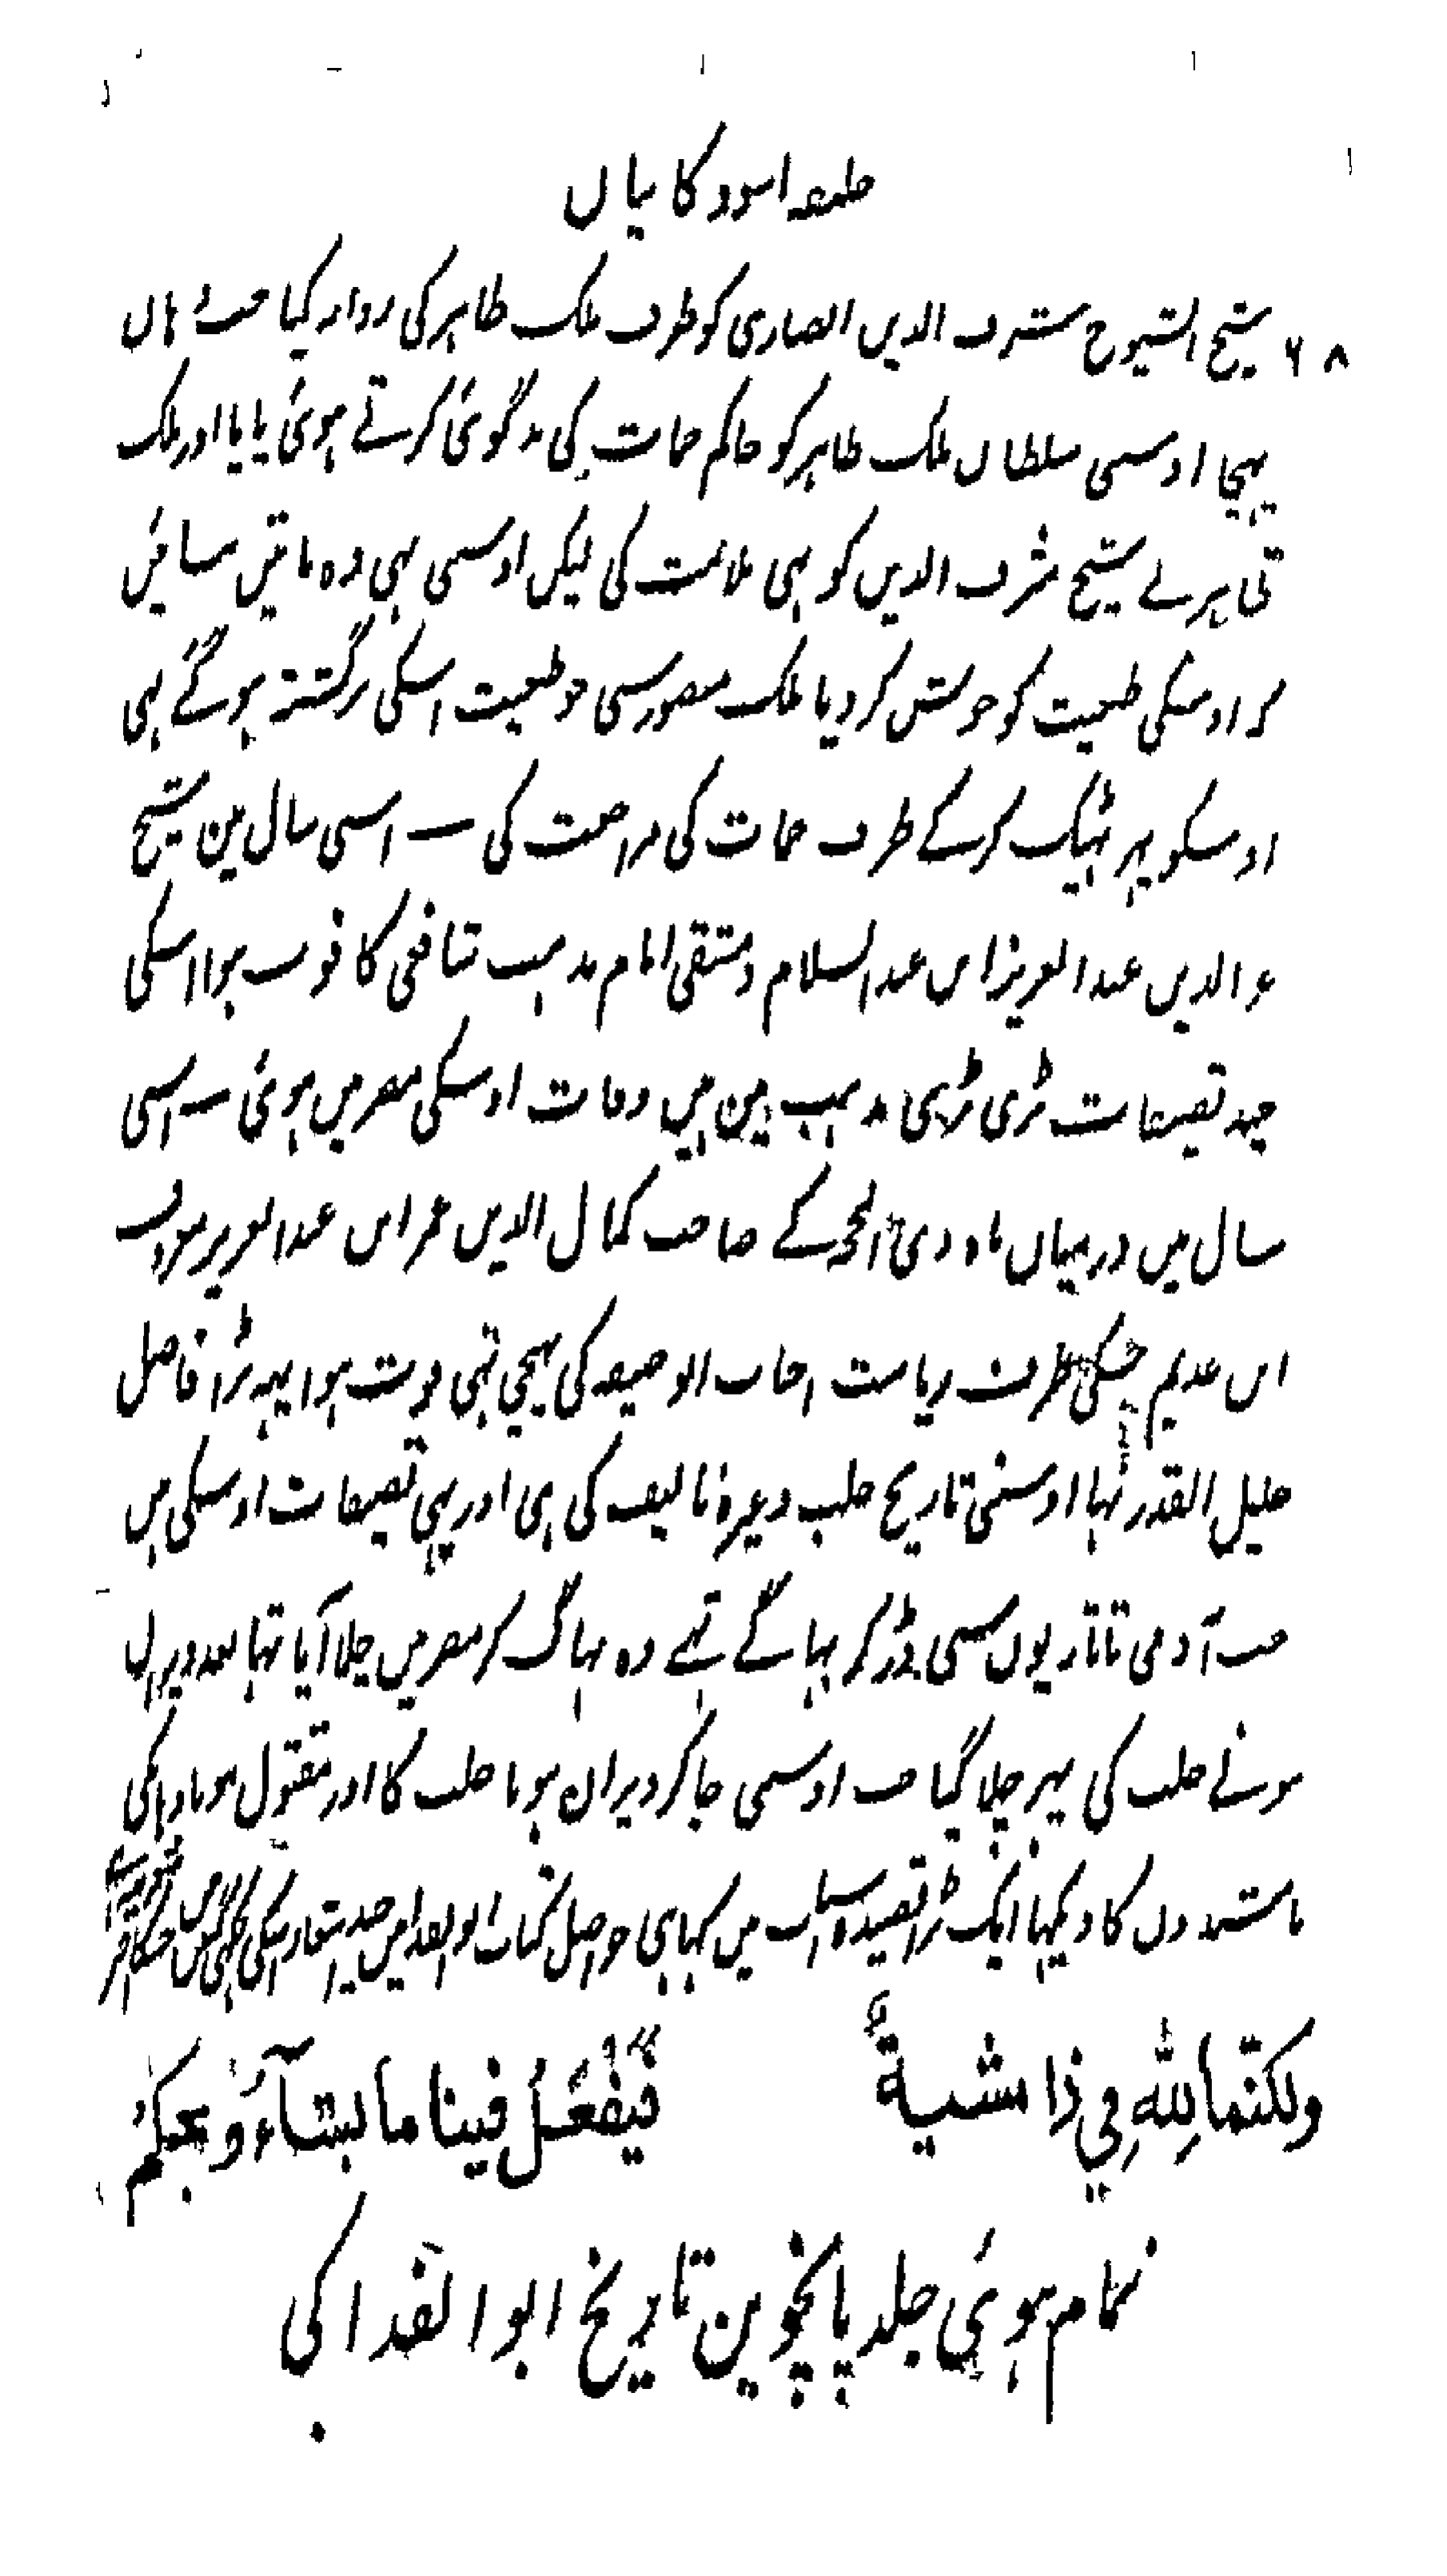 خلیفہ اسود کا بیاں
۶۸ شیخ الشیوخ شرف الدین انصاری کو طرف ملک ظاہر کی روانہ کیا جب وہاں
پہنچا اوسی سلطان ملک ظاہر کو حاکم حمات کی بدگوئی کرتے ہوئی پایا اور ملک
ظاہر نے شیخ شرف الدین کو بہی ملامت کی لیکن اوسی بہی وہ باتیں سنائیں
کہ اوسکی طبیعت کو خوش کر دیا ملک منصور سی جو طبیعت اسکی برگشتہ ہوگئے تہی
اوسکو پہر ٹہیک کرکے طرف حمات کی مراجعت کی — اسی سال مین شیخ
عز الدین عبد العزیز ابن عبد السلام دمشقی امام مذہب شافعی کا فوت ہوا اسکی
چند تصنیفات بڑی بڑی مذہب مین ہیں وفات اوسکی مصر میں ہوئی — اسی
سال میں درمیان ماہ ذی الحجہ کے صاحب کمال الدین عمر ابن عبد العزیز معروف
ابن عدیم جسکی طرف ریاست اصحاب ابو حنیفہ کی پہنچی تہی فوت ہوا یہہ بڑا فاضل
جلیل القدر تہا اوسنی تاریخ حلب وغیرہ تالیف کی ہی اور بہی تصنیفات اوسکی ہیں
جب آدمی تاتاریوں سی ڈر کر بہاگے تہے وہ بہاگ کر مصر میں چلا آیا تہا بعد ویران
ہونے حلب کی پہر چلا گیا جب اوسی جا کر ویران ہونا حلب کا اور مقتول ہونا وہاں کی
باشندوں کا دیکہا ایک بڑا قصیدہ اس باب میں کہا ہی جو اصل کتاب ابو الفدا میں چند اشعار اسکی لکہی ہیں
ولکنّما للّٰہِ فی ذا مشیۃٌ فیفعلُ فینا ما یشآءُ و یحکمُ
تمام ہوئی جلد پانچوین تاریخ ابو الفدا کی